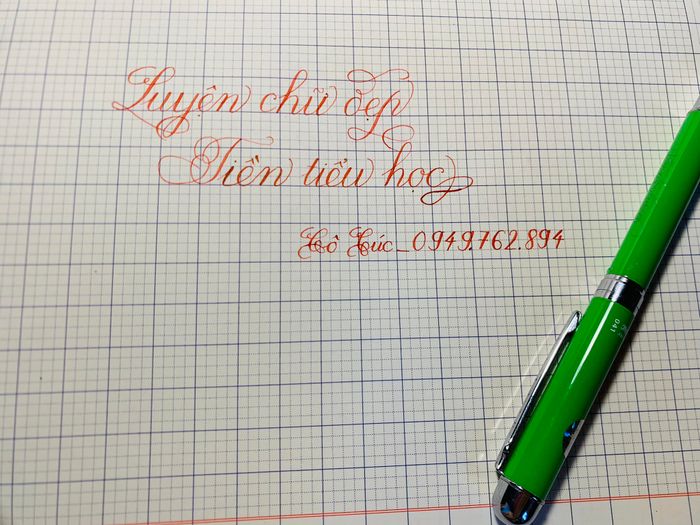 Luyện chữ đẹp
Tiền tiểu học
0949.762.894
041